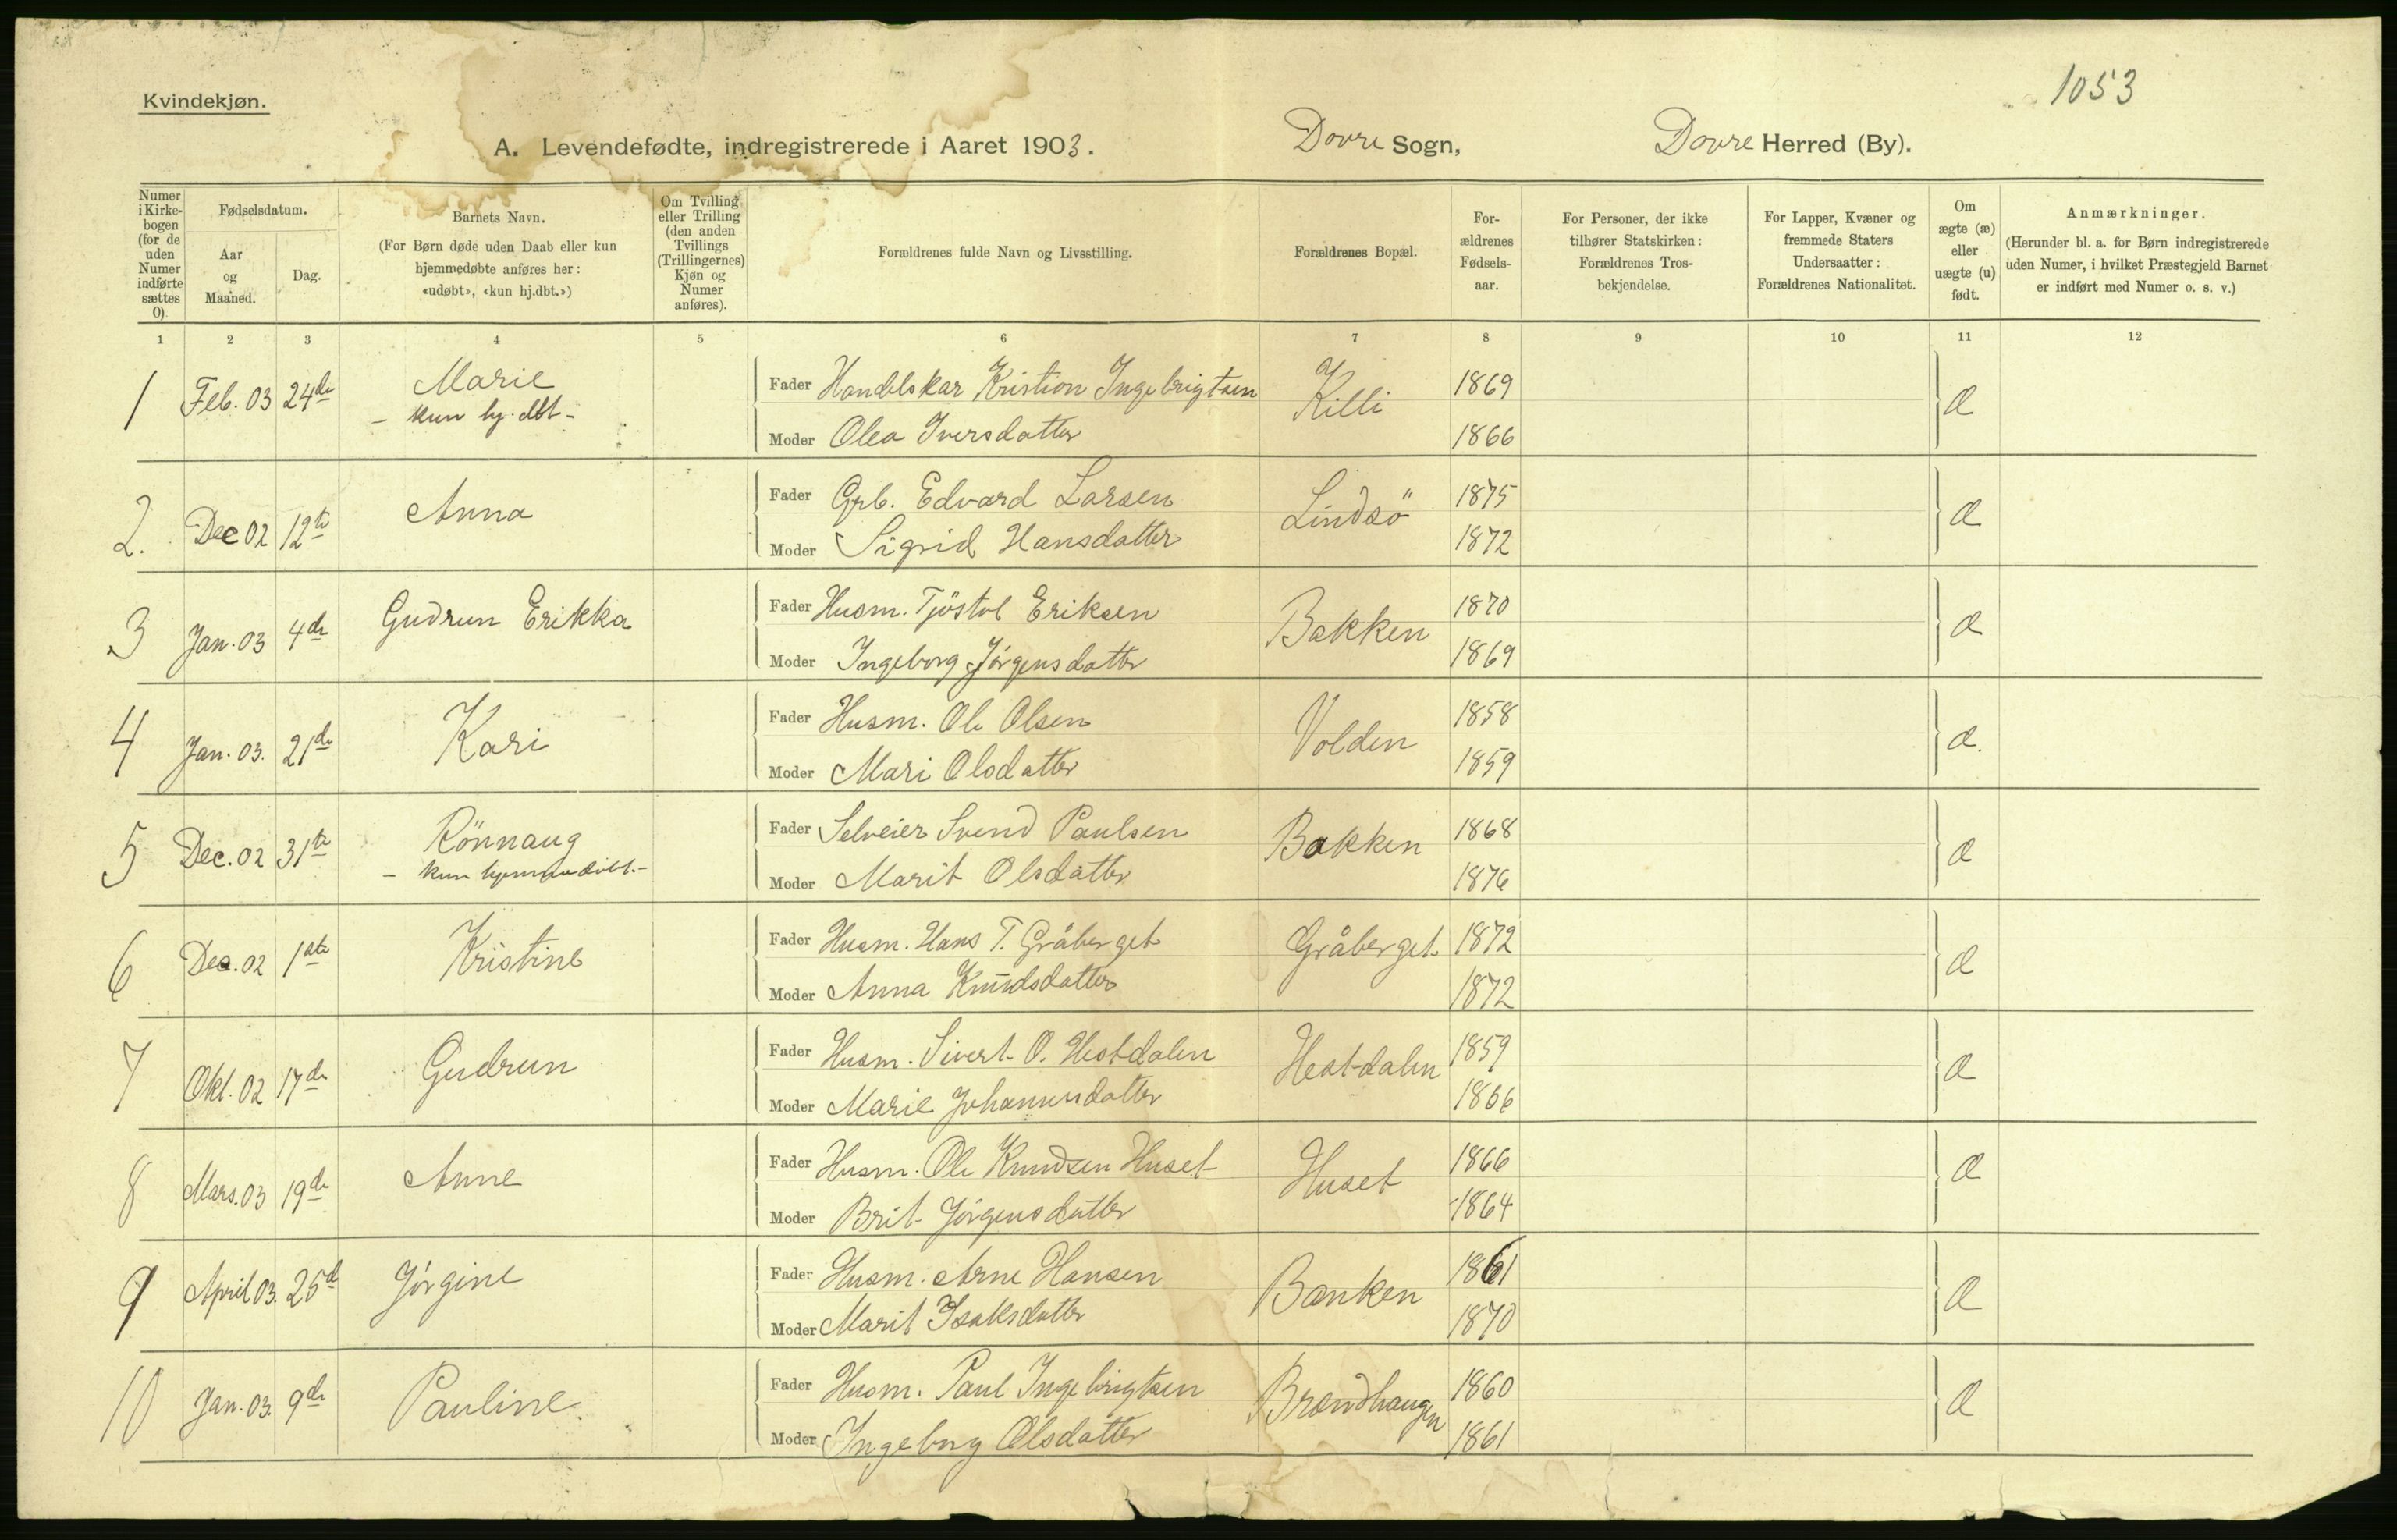 1053
Kvindekjøn.
A. Levendefødte, indregistrerede i Aaret 1903. Dovre Sogn, Dovre Herred (By).
Numer i Kirkebogen (for de uden Numer indførte sættes 0).
Fødselsdatum.
Aar og Maaned.
Dag.
Barnets Navn.
(For Børn døde uden Daab eller kun
hjemmedøbte anføres her:
«udøbt», «kun hj.dbt.»)
Om Tvilling
eller Trilling
(den anden
Tvillings
(Trillingernes)
Kjøn og
Numer
anføres).
Forældrenes fulde Navn og Livsstilling.
Forældrenes Bopæl.
For-
ældrenes
Fødsels-
aar.
For Personer, der ikke
tilhører Statskirken:
Forældrenes Tros-
bekjendelse.
For Lapper, Kvæner og
fremmede Staters
Undersaatter:
Forældrenes Nationalitet.
Om
ægte (æ)
eller
uægte (u)
født.
Anmærkninger.
(Herunder bl. a. for Børn indregistrerede
uden Numer, i hvilket Præstegjeld Barnet
er indført med Numer o. s. v.)
1 2 3 4 5 6 7 8 9 10 11 12
1 Feb. 03 24de Marie Fader Handelskar Kristian Ingebrigtsen Killi 1869 æ
– kun hj. dbt – Moder Olea Iversdatter 1866
2. Dec 02 12te Anna Fader Grb. Edvard Larsen Lindsö 1875 æ
Moder Sigrid Hansdatter 1872
3 Jan. 03 4de Gudrun Erikka Fader Husm. Tjöstol Eriksen Bakken 1870 æ
Moder Ingeborg Jörgensdatter 1869
4 Jan. 03. 21de Kari Fader Husm. Ole Olsen Volden 1858 æ.
Moder Mari Olsdatter 1859
5 Dec. 02 31te Rönnaug Fader Selveier Svend Paulsen Bakken 1868 æ
– kun hjemmedöbt. – Moder Marit Olsdatter 1876
6 Dec. 02 1ste Kristine Fader Husm. Hans T. Gråberget Gråberget 1872 æ
Moder Anna Knudsdatter 1872
7 Okt. 02 17de Gudrun Fader Husm. Sivert O. Hestdalen Hestdalen 1859 æ
Moder Marie Johannesdatter 1866
8 Mars. 03 19de Anne Fader Husm. Ole Knudsen Huset Huset 1866 æ
Moder Brit Jörgensdatter 1864
9 April 03. 25de Jörgine Fader Husm. Arne Hansen Banken 1861 æ
Moder Marit Isaksdatter 1870
10 Jan. 03. 9de Pauline. Fader Husm. Paul Ingebrigtsen Brændhaugen 1860 æ
Moder Ingeborg Olsdatter 1861